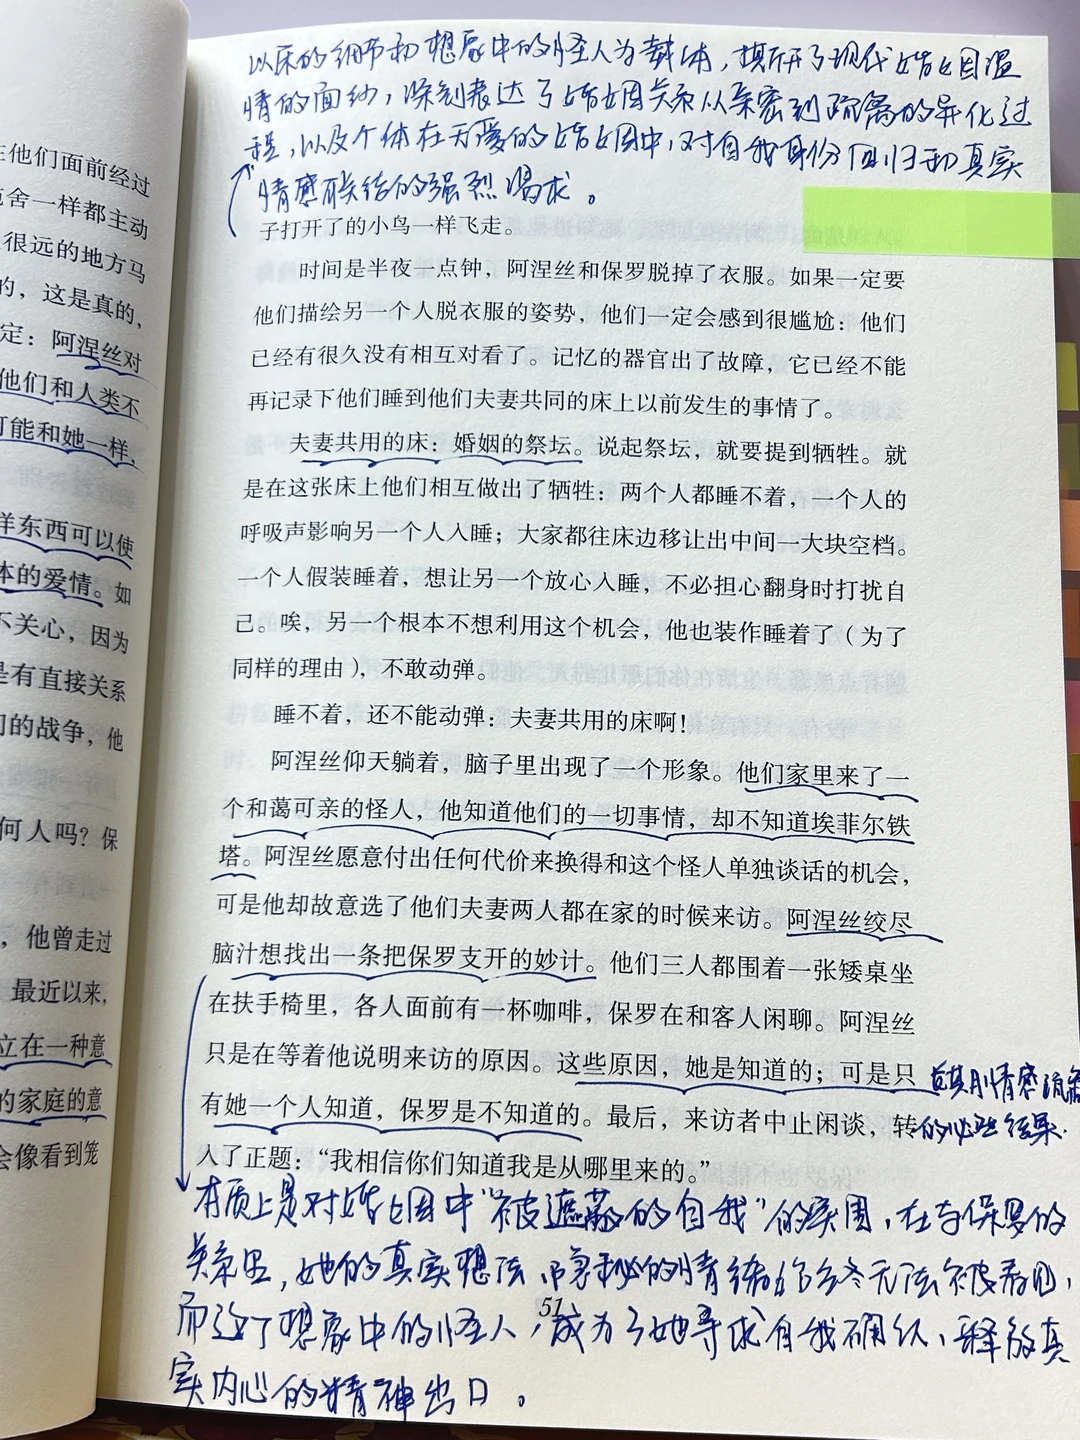 在他们面前经过
施舍一样都主动
很远的地方马
的，这是真的，
定：阿涅丝对
他们和人类不
可能和她一样，
样东西可以使
体的爱情。如
不关心，因为
是有直接关系
们的战争，他
何人吗？保
，他曾走过
最近以来，
立在一种意
的家庭的意
会像看到笼
以床的细节和想象中的怪人为载体，撕开了现代婚姻温
情的面纱，深刻表达了婚姻关系从亲密到疏离的异化过
程，以及个体在无爱的婚姻中，对自我身份回归和真实
情感联结的强烈渴求。
子打开了的小鸟一样飞走。
时间是半夜一点钟，阿涅丝和保罗脱掉了衣服。如果一定要
他们描绘另一个人脱衣服的姿势，他们一定会感到很尴尬：他们
已经有很久没有相互对看了。记忆的器官出了故障，它已经不能
再记录下他们睡到他们夫妻共同的床上以前发生的事情了。
夫妻共用的床：婚姻的祭坛。说起祭坛，就要提到牺牲。就
是在这张床上他们相互做出了牺牲：两个人都睡不着，一个人的
呼吸声影响另一个人入睡；大家都往床边移让出中间一大块空档。
一个人假装睡着，想让另一个放心入睡，不必担心翻身时打扰自
己。唉，另一个根本不想利用这个机会，他也装作睡着了（为了
同样的理由），不敢动弹。
睡不着，还不能动弹：夫妻共用的床啊！
阿涅丝仰天躺着，脑子里出现了一个形象。他们家里来了一
个和蔼可亲的怪人，他知道他们的一切事情，却不知道埃菲尔铁
塔。阿涅丝愿意付出任何代价来换得和这个怪人单独谈话的机会，
可是他却故意选了他们夫妻两人都在家的时候来访。阿涅丝绞尽
脑汁想找出一条把保罗支开的妙计。他们三人都围着一张矮桌坐
在扶手椅里，各人面前有一杯咖啡，保罗在和客人闲聊。阿涅丝
只是在等着他说明来访的原因。这些原因，她是知道的；可是只
有她一个人知道，保罗是不知道的。最后，来访者中止闲谈，转
入了正题：“我相信你们知道我是从哪里来的。”
长期情感疏离
的必然结果.
本质上是对婚姻中“被遮蔽的自我”的突围，在与保罗的
关系里，她的真实想法、隐秘的情绪始终无法被看见，
而这个想象中的怪人，成为了她寻求自我确认、释放真
实内心的精神出口。
51